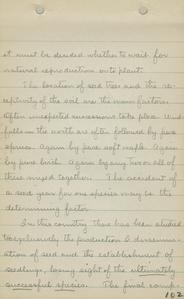 it must be decided whether to wait for
natural reproduction or to plant.
The location of seed trees and the re-
ceptivity of the soil are the main factors.
Often unexpected successions take place. Wind-
falls in the north are often followed by pure
spruce. Again by pure soft maple. Again
by pure birch. Again by any two or all of
these mixed together. The accident of
a seed year for one species may be the
determining factor.
In this country there has been studied
too exclusively the production & dissemin-
ation of seed and the establishment of
seedlings, losing sight of the ultimately
successful species. The final comp-
102